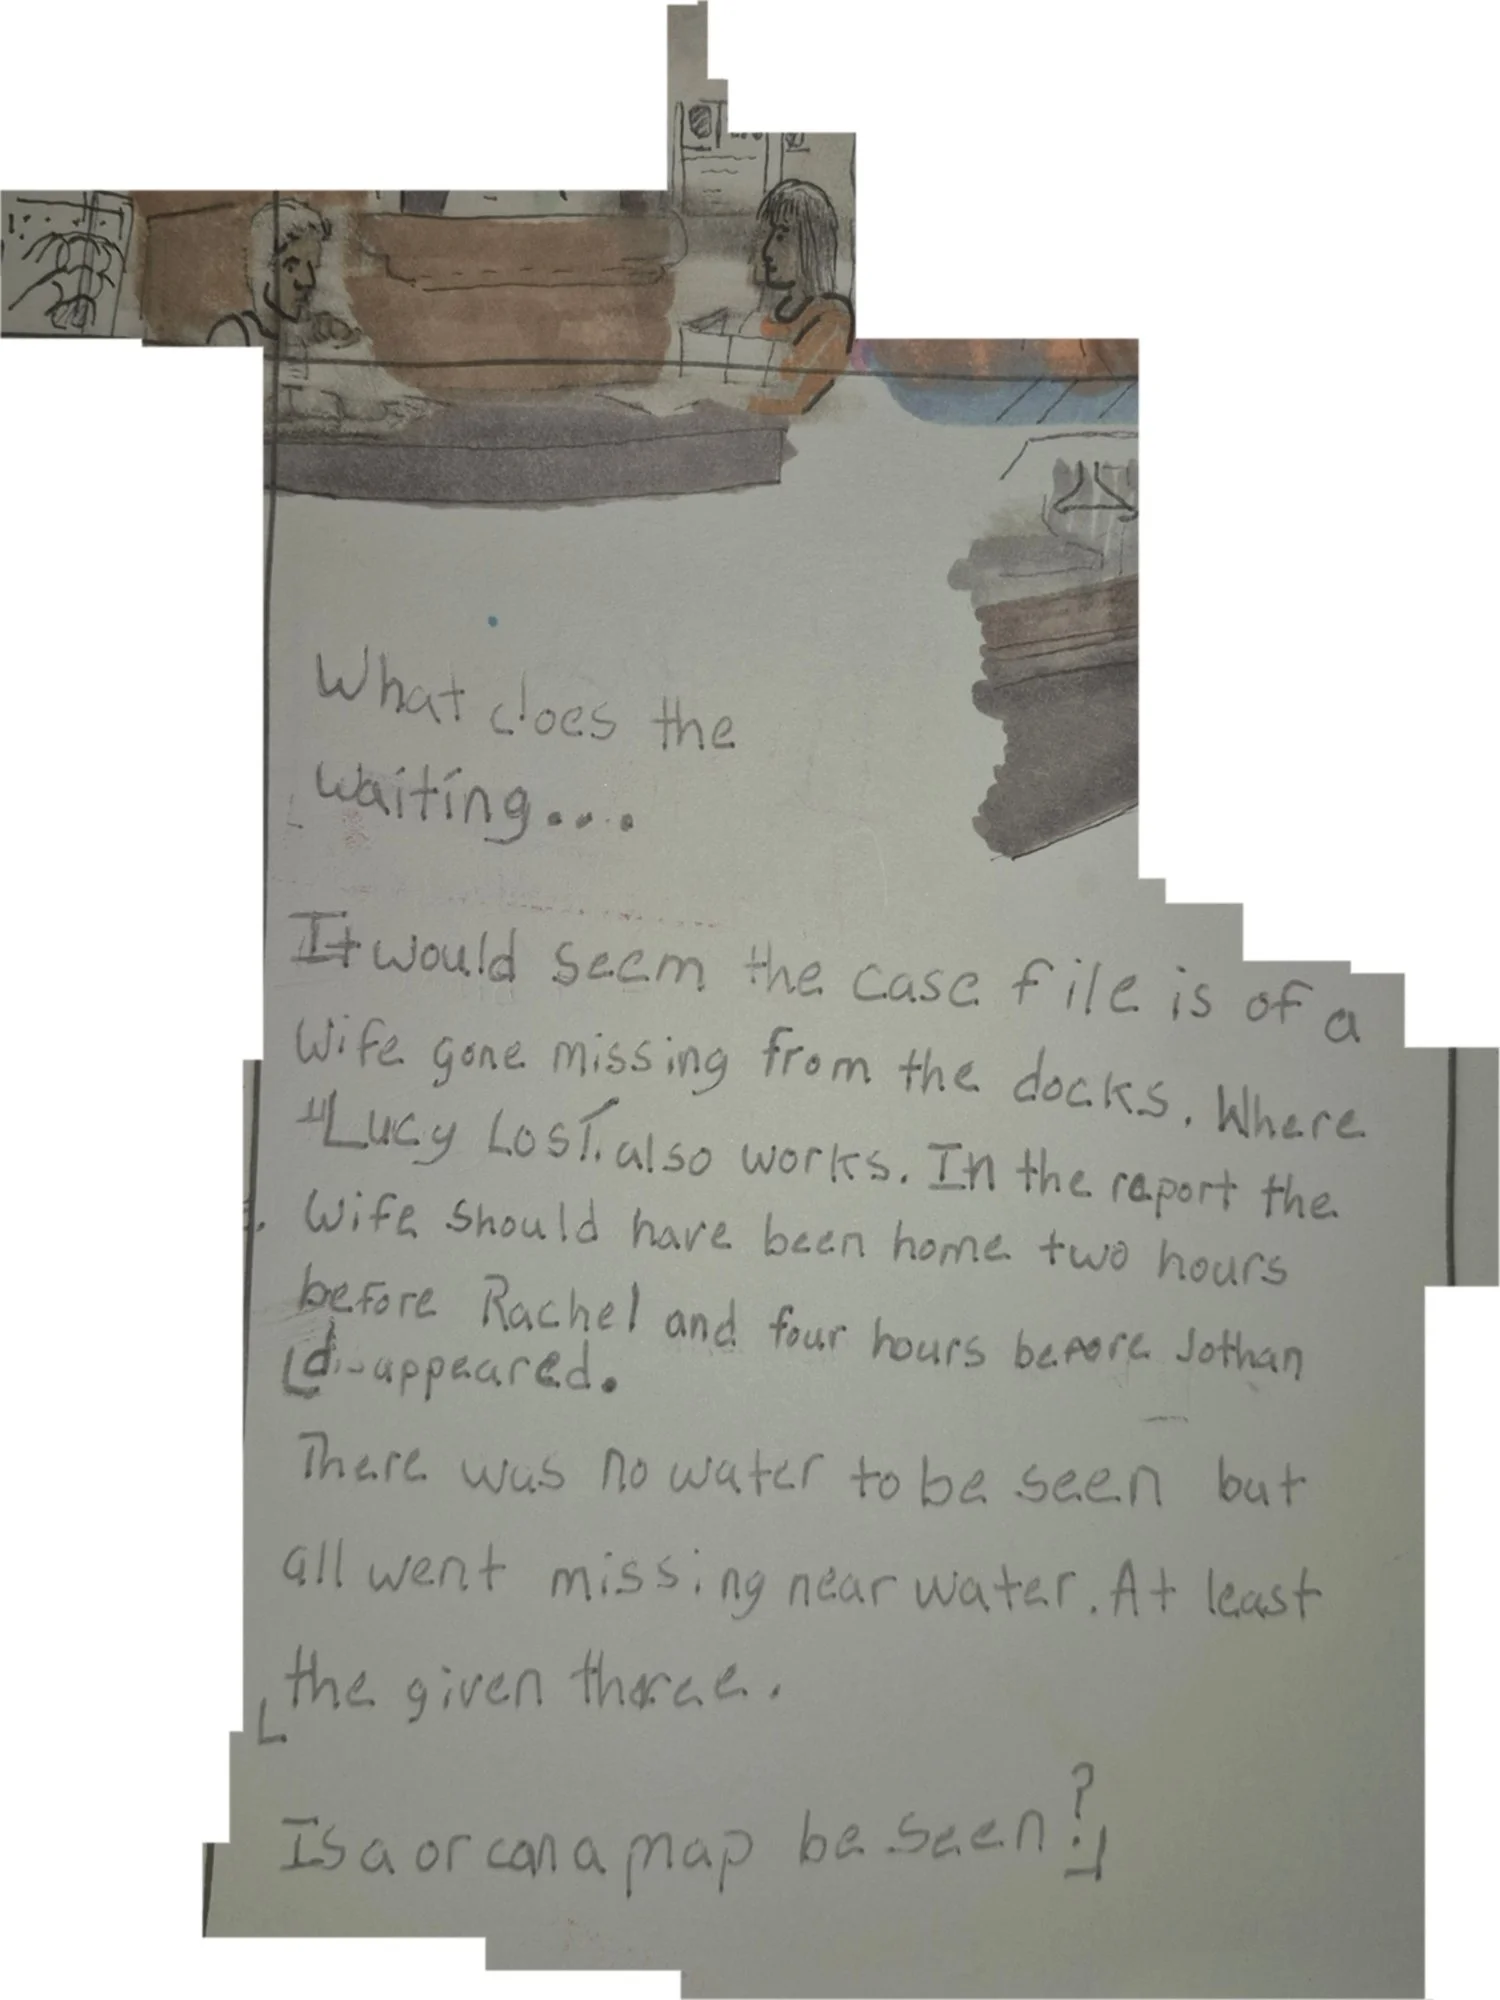 What does the
waiting...
It would seem the case file is of a
wife gone missing from the docks. Where
"Lucy Lost" also works. In the report the
wife should have been home two hours
before Rachel and four hours before Jothan
disappeared.
There was no water to be seen but
all went missing near water. At least
the given three.
Is a or can a map be seen?